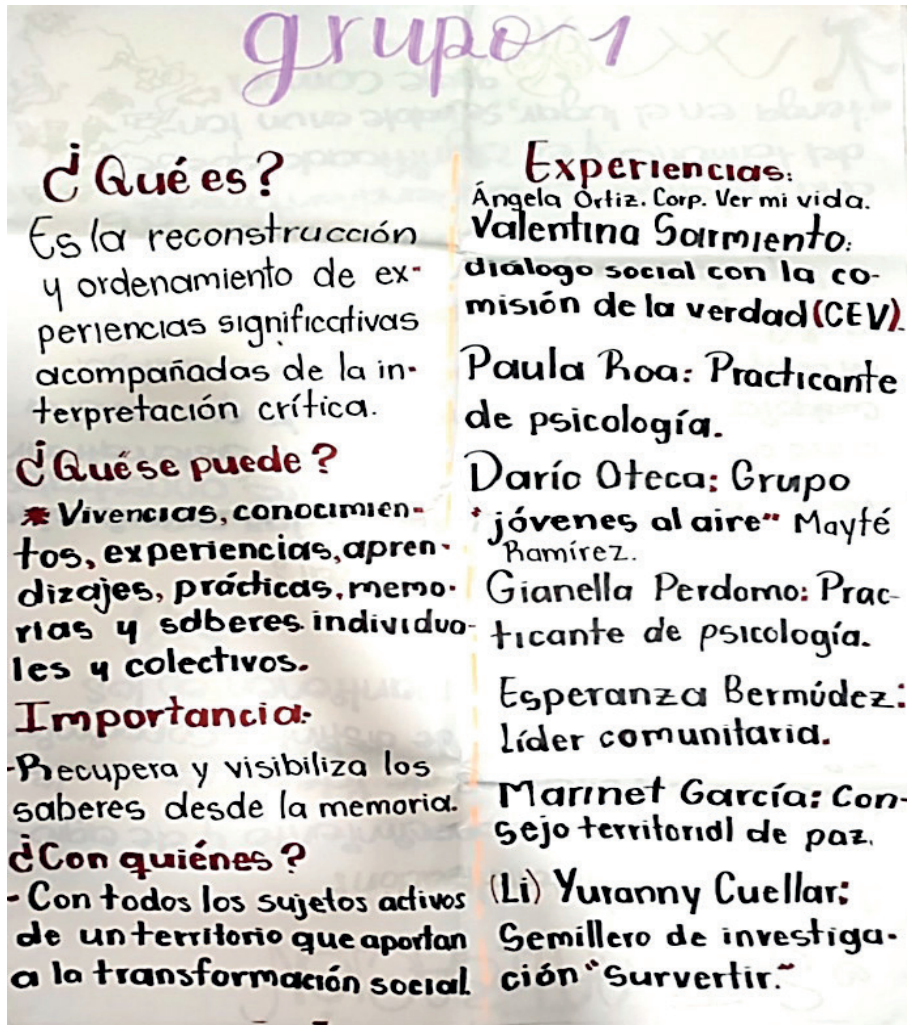 grupo 1
¿Qué es?
Es la reconstrucción
y ordenamiento de ex-
periencias significativas
acompañadas de la in-
terpretación crítica.
¿Qué se puede?
* Vivencias, conocimien-
tos, experiencias, apren-
dizajes, prácticas, memo-
rias y saberes individua-
les y colectivos.
Importancia:
-Recupera y visibiliza los
saberes desde la memoria.
¿Con quiénes?
- Con todos los sujetos activos
de un territorio que aportan
a la transformación social.
Experiencias:
Ángela Ortiz. Corp. Ver mi vida.
Valentina Sarmiento:
diálogo social con la co-
misión de la verdad (CEV).
Paula Roa: Practicante
de psicología.
Darío Oteca: Grupo
"jóvenes al aire" Mayté
Ramírez.
Gianella Perdomo: Prac-
ticante de psicología.
Esperanza Bermúdez:
Líder comunitaria.
Marinet García: Con-
sejo territorial de paz.
(Li) Yuranny Cuellar:
Semillero de investiga-
ción "Survertir."